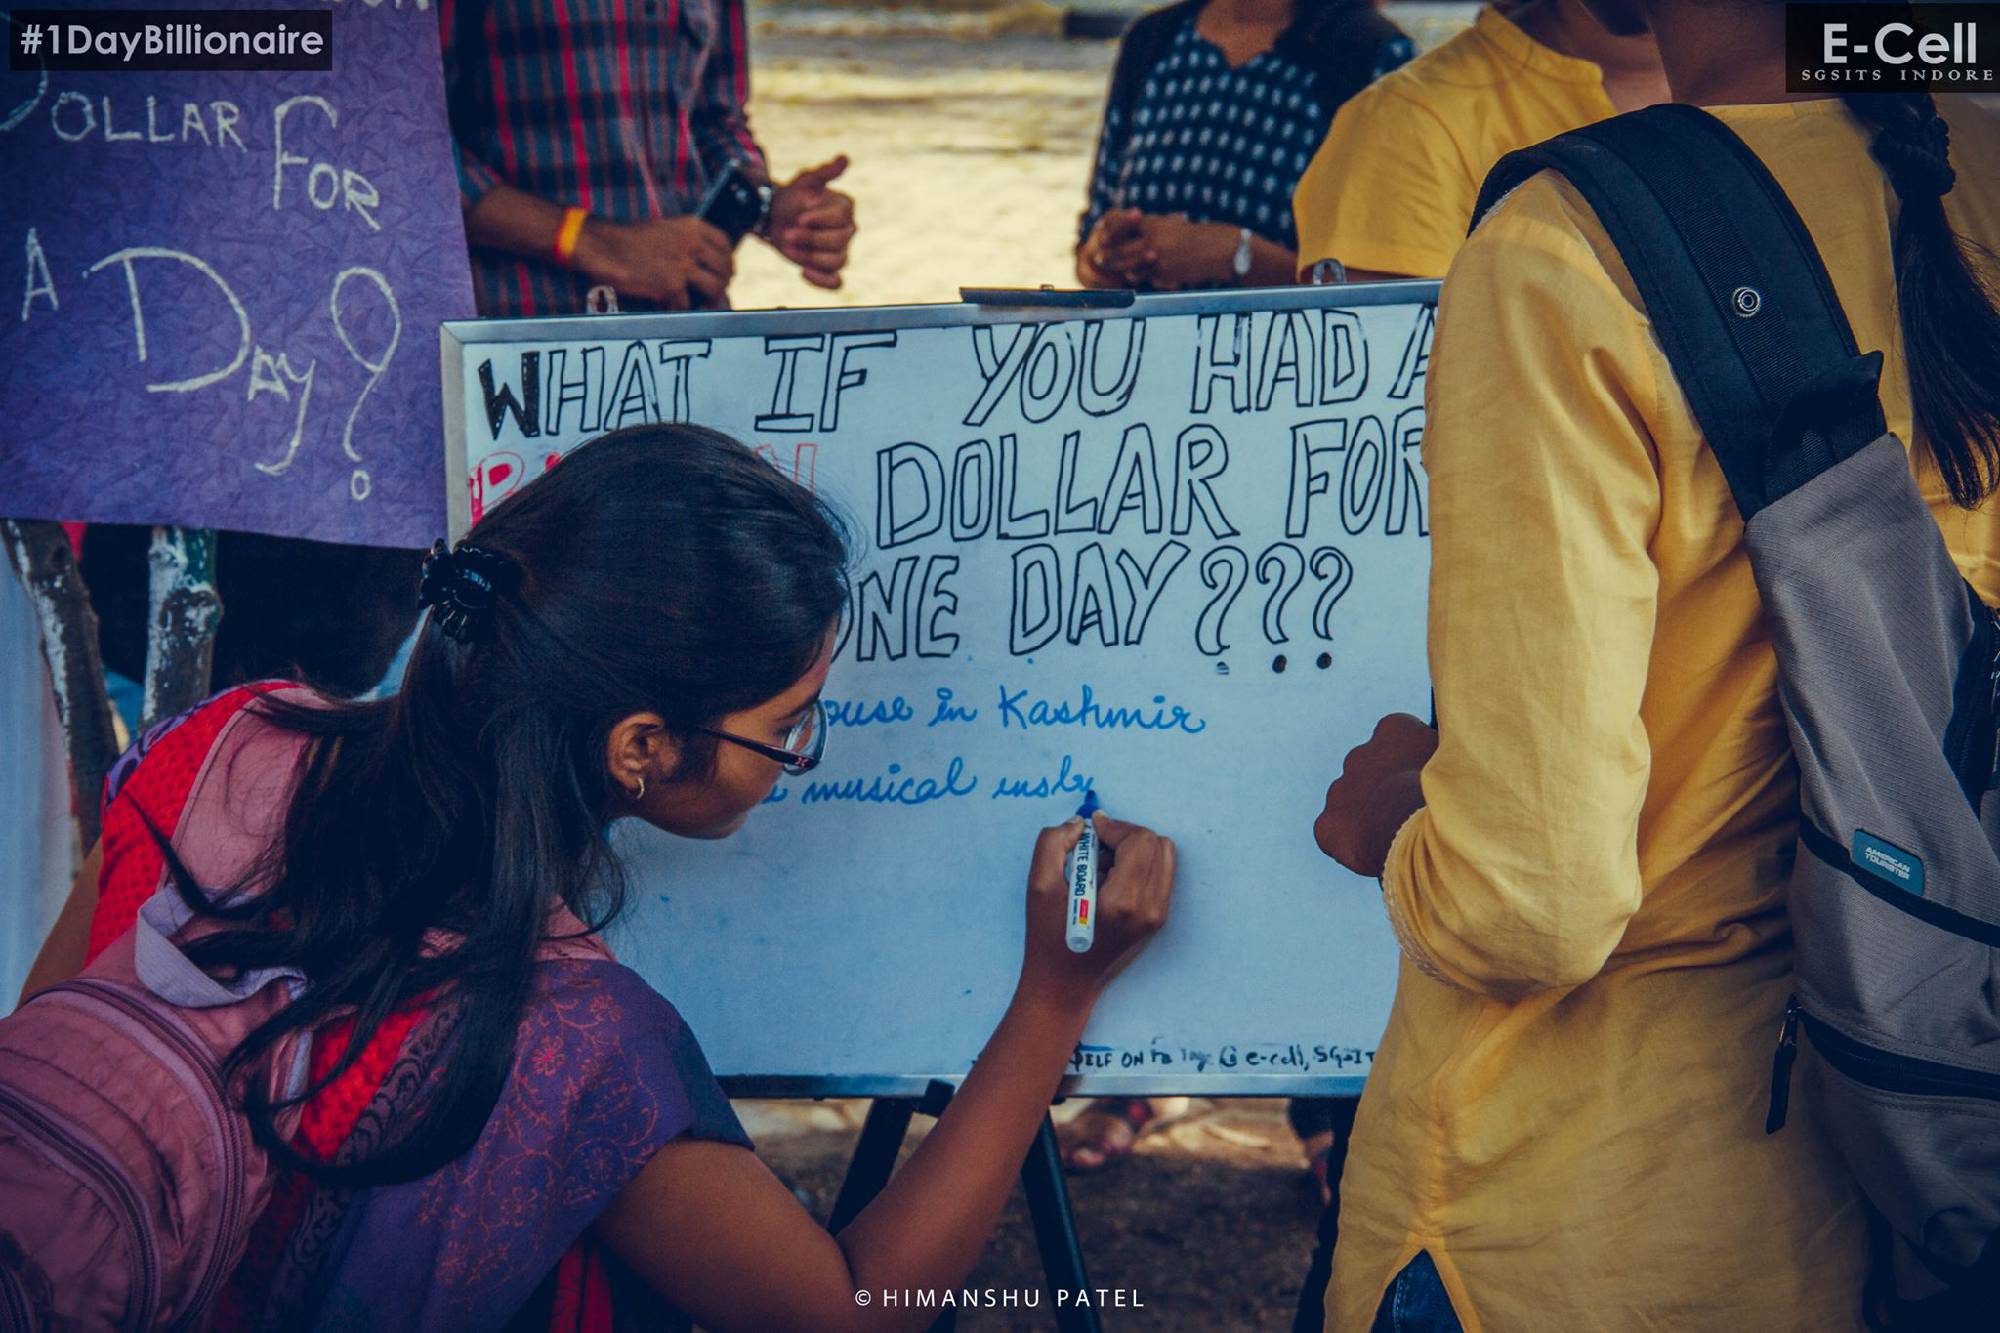 #1DayBillionaire
E-Cell
SGSITS INDORE
DOLLAR
FOR
A DAY?
WHAT IF YOU HAD A
DOLLAR FOR
ONE DAY???
in Kashmir
musical
SELF ON @ e-cell, SGSIT
WHITE BOARD
AMERICAN
TOURISTER
© HIMANSHU PATEL